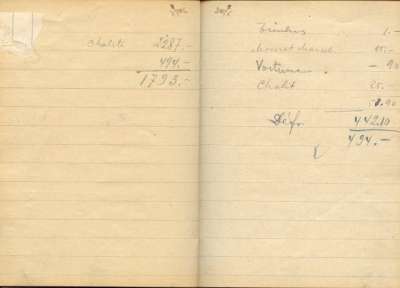 Chaliti 2287.-
494.-
1793.-
Timbres 1.-
15.-
Voiture . - 90
Chalit 25.-
Déf. 442.10
494.-